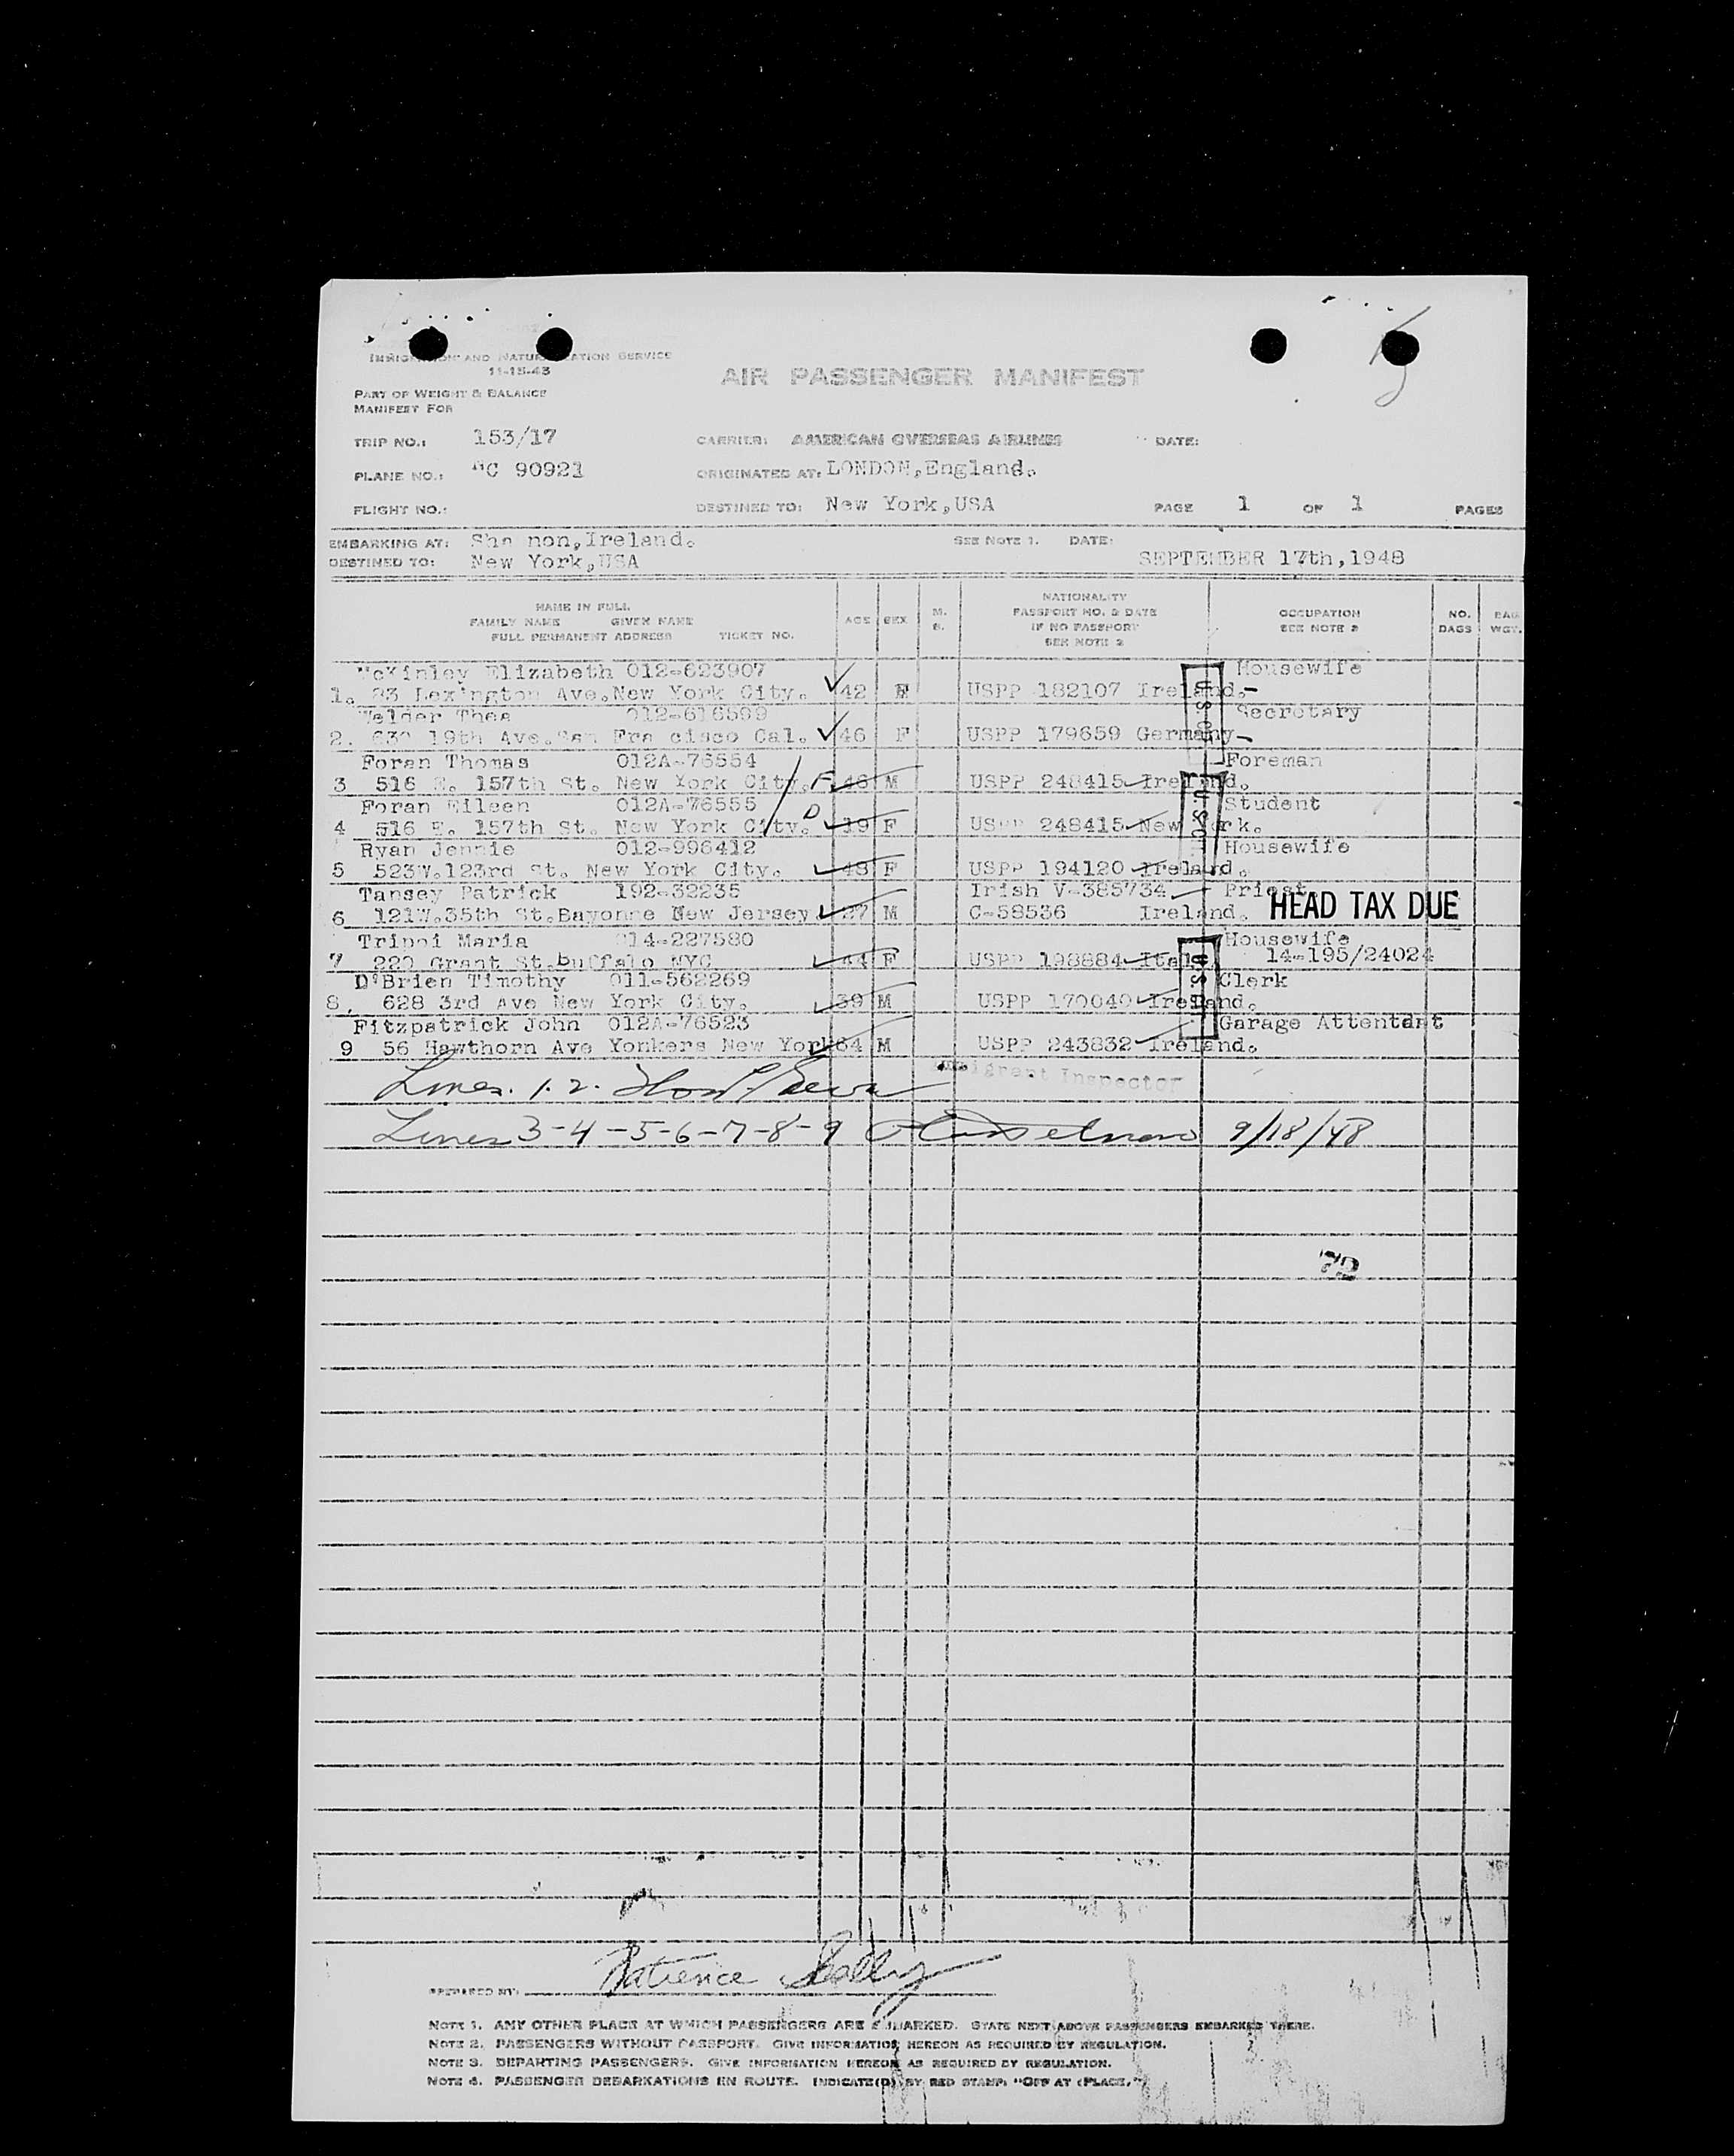 IMMIGRATION AND NATURALIZATION SERVICE
11-15-43
AIR PASSENGER MANIFEST
PART OF WEIGHT & BALANCE
MANIFEST FOR
TRIP NO.: 153/17 CARRIER: AMERICAN OVERSEAS AIRLINES DATE:
PLANE NO.: NC 90921 ORIGINATED AT: LONDON,England.
FLIGHT NO.: DESTINED TO: New York,USA PAGE 1 OF 1 PAGES
EMBARKING AT: Sha non,Ireland. SEE NOTE 1. DATE:
DESTINED TO: New York,USA SEPTEMBER 17th,1948
NAME IN FULL
FAMILY NAME GIVEN NAME
FULL PERMANENT ADDRESS TICKET NO. AGE SEX M. S. NATIONALITY PASSPORT NO. & DATE IF NO PASSPORT SEE NOTE 2 OCCUPATION SEE NOTE 2 NO. BAGS BAG WGT.
McKinley Elizabeth 012-623907 Housewife
1. 83 Lexington Ave.New York City. 42 F USPP 182107 Ireland.
Welder Thea 012-616599 Secretary
2. 630 19th Ave.San Fra cisco Cal. 46 F USPP 179659 Germany
Foran Thomas 012A-76554 Foreman
3 516 E. 157th St. New York City. F 46 M USPP 248415 Ireland.
Foran Eileen 012A-76555 Student
4 516 E. 157th St. New York City. D 19 F USPP 248415 New York.
Ryan Jennie 012-996412 Housewife
5 523W.123rd St. New York City. 48 F USPP 194120 Ireland.
Tansey Patrick 192-32235 Irish V-385734 Priest
6 121W.35th St.Bayonne New Jersey. 27 M C-58536 Ireland. HEAD TAX DUE
Tripoi Maria 014-227580 Housewife
7 220 Grant St.Buffalo NYC 44 F USPP 198884 Italy 14-195/24024
O'Brien Timothy 011-562269 Clerk
8. 628 3rd Ave New York City. 39 M USPP 170040 Ireland.
Fitzpatrick John 012A-76523 Garage Attentant
9 56 Hawthorn Ave Yonkers New York 64 M USPP 243832 Ireland.
Immigrant Inspector
Lines. 1. 2.
Lines 3-4-5-6-7-8-9 9/18/48
PREPARED BY: Patience
NOTE 1. ANY OTHER PLACE AT WHICH PASSENGERS ARE EMBARKED. STATE NEXT ABOVE PASSENGERS EMBARKED THERE.
NOTE 2. PASSENGERS WITHOUT PASSPORT. GIVE INFORMATION HEREON AS REQUIRED BY REGULATION.
NOTE 3. DEPARTING PASSENGERS. GIVE INFORMATION HEREON AS REQUIRED BY REGULATION.
NOTE 4. PASSENGER DEBARKATIONS EN ROUTE. INDICATE(D) BY RED STAMP: "OFF AT (PLACE."